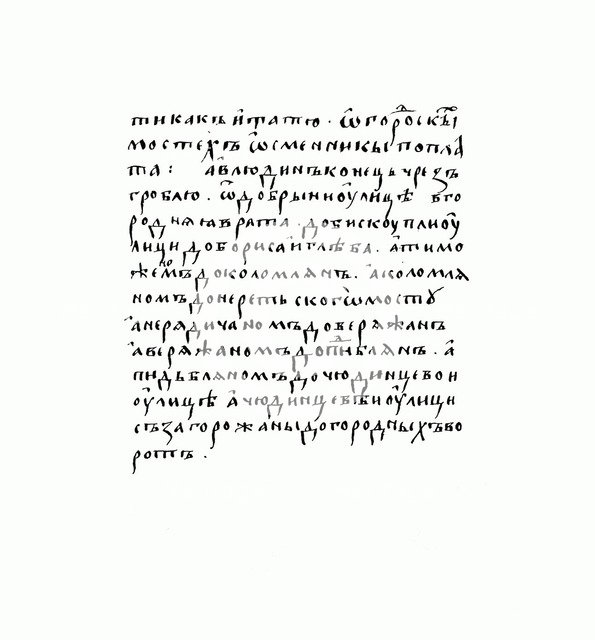 тикакъ и татю · ѿ горѡⷣскыⷯ
мостехъ ѡсменникы поплⷶ
та : а влюдинъ конець чрезъ
гроблю · ѿ добрыни оулицѣ в го
родняя врята · до бископли оу
лици до бориса и глѣба · а тимо
жемъ до коломлянъ · а коломля
номъ до неретьского мосту
а нерядичаномъ до веряжанъ
а веряжаномъ до пиⷣблянъ · а
пидьбляномъ до чюдинцевои
оулицѣ а чюдинцевѣи оулици
съ загорожаны до городныхъ во
ротъ ·